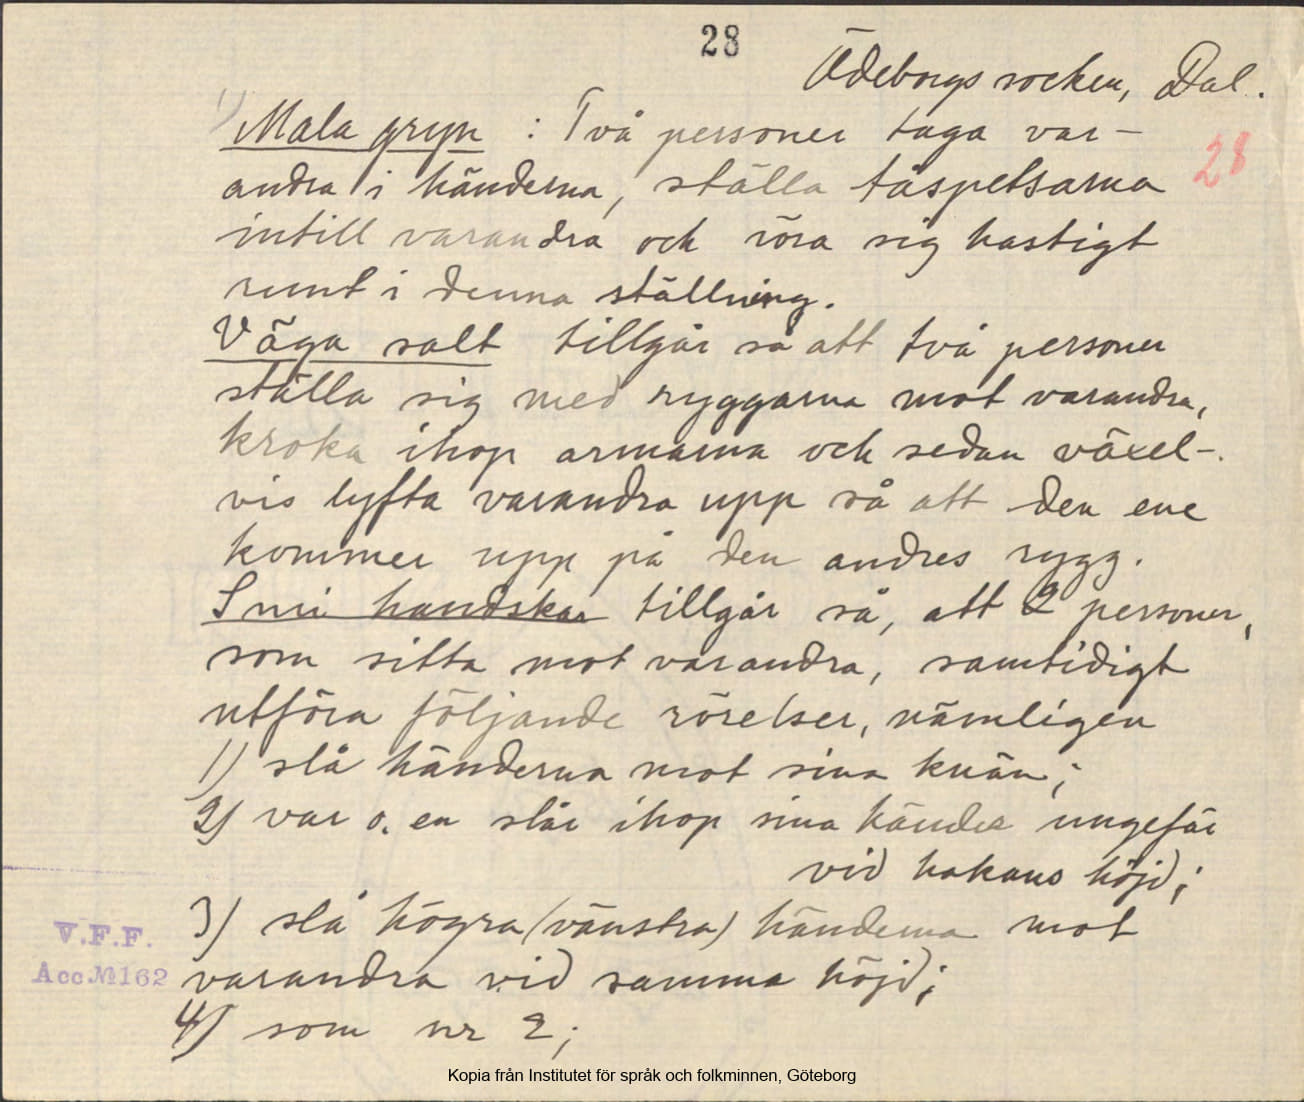 28
Ödeborgs socken, Dal.
1) Mala gryn : Två personer taga var-
andra i händerna, ställa tåspetsarna
28
intill varandra och röra sig hastigt
runt i denna ställning.
Väga salt tillgår så att två personer
ställa sig med ryggarna mot varandra,
kroka ihop armarna och sedan växel-
vis lyfta varandra upp så att den ene
kommer upp på den andres rygg.
Smi handskar tillgår så, att 2 personer,
som sitta mot varandra, samtidigt
utföra följande rörelser, nämligen
1) slå händerna mot sina knän;
2) var o. en slår ihop sina händer ungefär
vid hakans höjd;
3) slå högra (vänstra) händerna mot
V.F.F.
varandra vid samma höjd;
Acc.№162
4) som nr 2;
Kopia från Institutet för språk och folkminnen, Göteborg